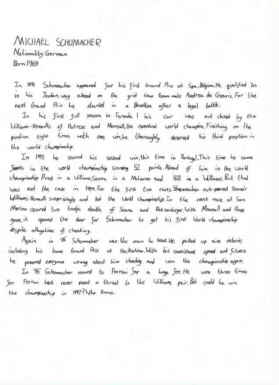 MICHAEL SCHUMACHER
Nationality: German
Born: 1969
In 1991 Schumacher appeared for his first Grand Prix at Spa, Belgium. He qualified 7th
in his Jordan, way ahead on the grid than team mate Andrea de Cesaris. For the
next Grand Prix he decided in a Benetton after a legal battle.
In his first full season in Formula 1 his car was out classed by the
Williams-Renaults of Patrese and Mansell, the eventual world champion. Finishing on the
podium eight times with one win, he thoroughly deserved his third position in
the world championship.
In 1993 he scored his second win, this time in Portugal. This time he came
fourth in the world championship scoring 52 points. Ahead of him in the world
championship: Prost in a Williams, Senna in a McLaren and Hill in a Williams. But that
was not the case in 1994. For the first two races Schumacher out-paced Senna's
Williams-Renault surprisingly and led the World Championship. In the next race at San
Marino occured two tragic deaths of Senna and Ratzenberger. With Mansell and Prost
gone, it opened the door for Schumacher to get his first world championship
despite allegations of cheating.
Again in '95 Schumacher was the man to beat. He picked up nine victories
including his home Grand Prix at Hockenheim. With his consistent speed and
he proved everyone wrong about him cheating and won the championship again.
In '96 Schumacher moved to Ferrari for a huge fee. He won three times
for Ferrari but never posed a threat to the Williams pair. But could he win
the championship in 1997?